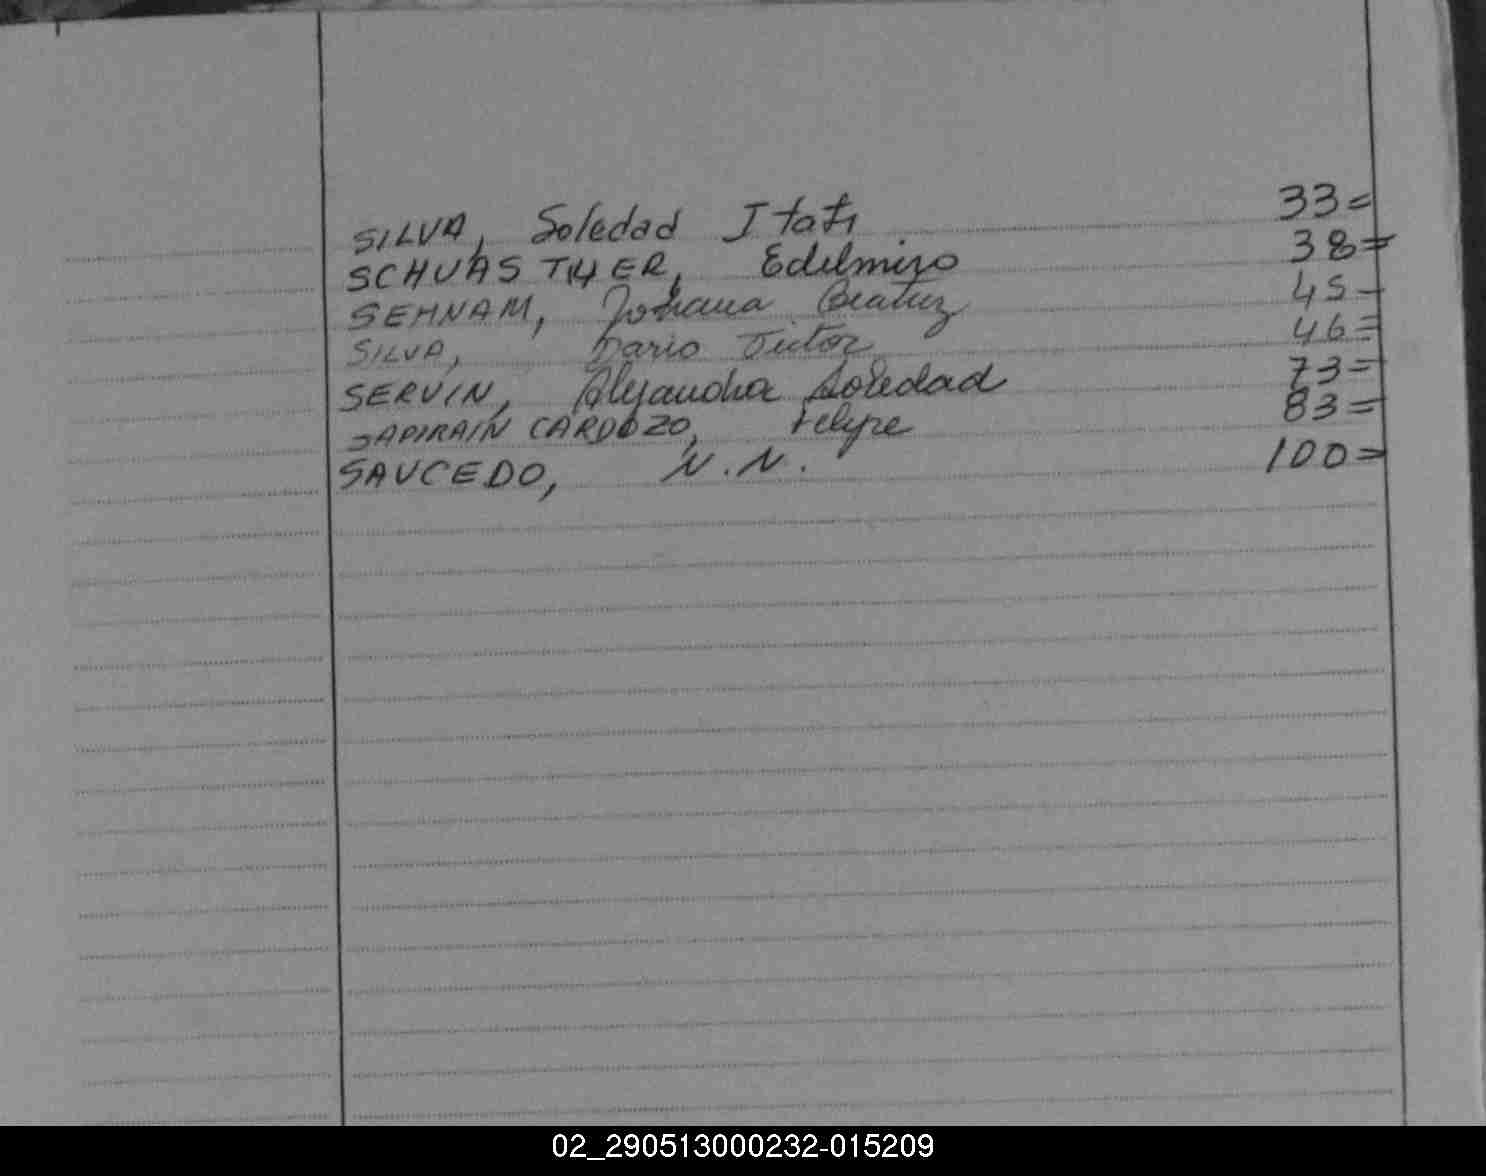 SILVA, Soledad Itati. 33=
SCHUASTHER, Edelmiro 38=
SEHNAM, Johana Beatriz 45=
SILVA, Dario 46=
SERVIN, Alejandra Soledad 73=
SAPIRAIN CARDOZO, Felipe 83=
SAUCEDO, N.N. 100=
02_290513000232-015209